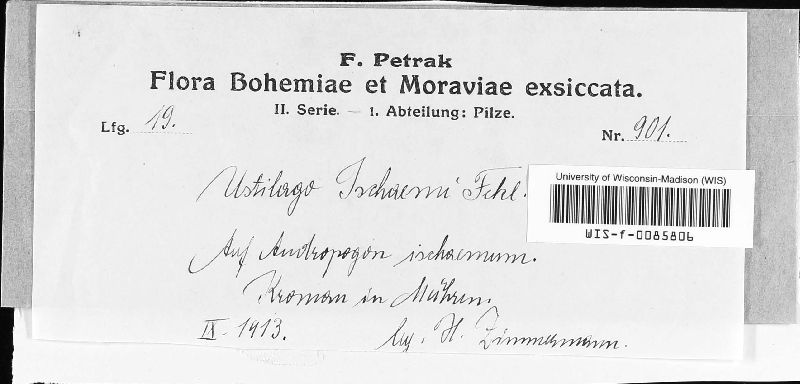 F. Petrak
Flora Bohemiae et Moraviae exsiccata.
II. Serie. — 1. Abteilung: Pilze.
Lfg. 19.
Nr. 901.
Ustilago Ischaemi Fckl.
University of Wisconsin-Madison (WIS)
WIS-f-0085806
Auf Andropogon ischaemum.
Kromau in Mähren.
IX. 1913.
leg. H. Zimmermann.